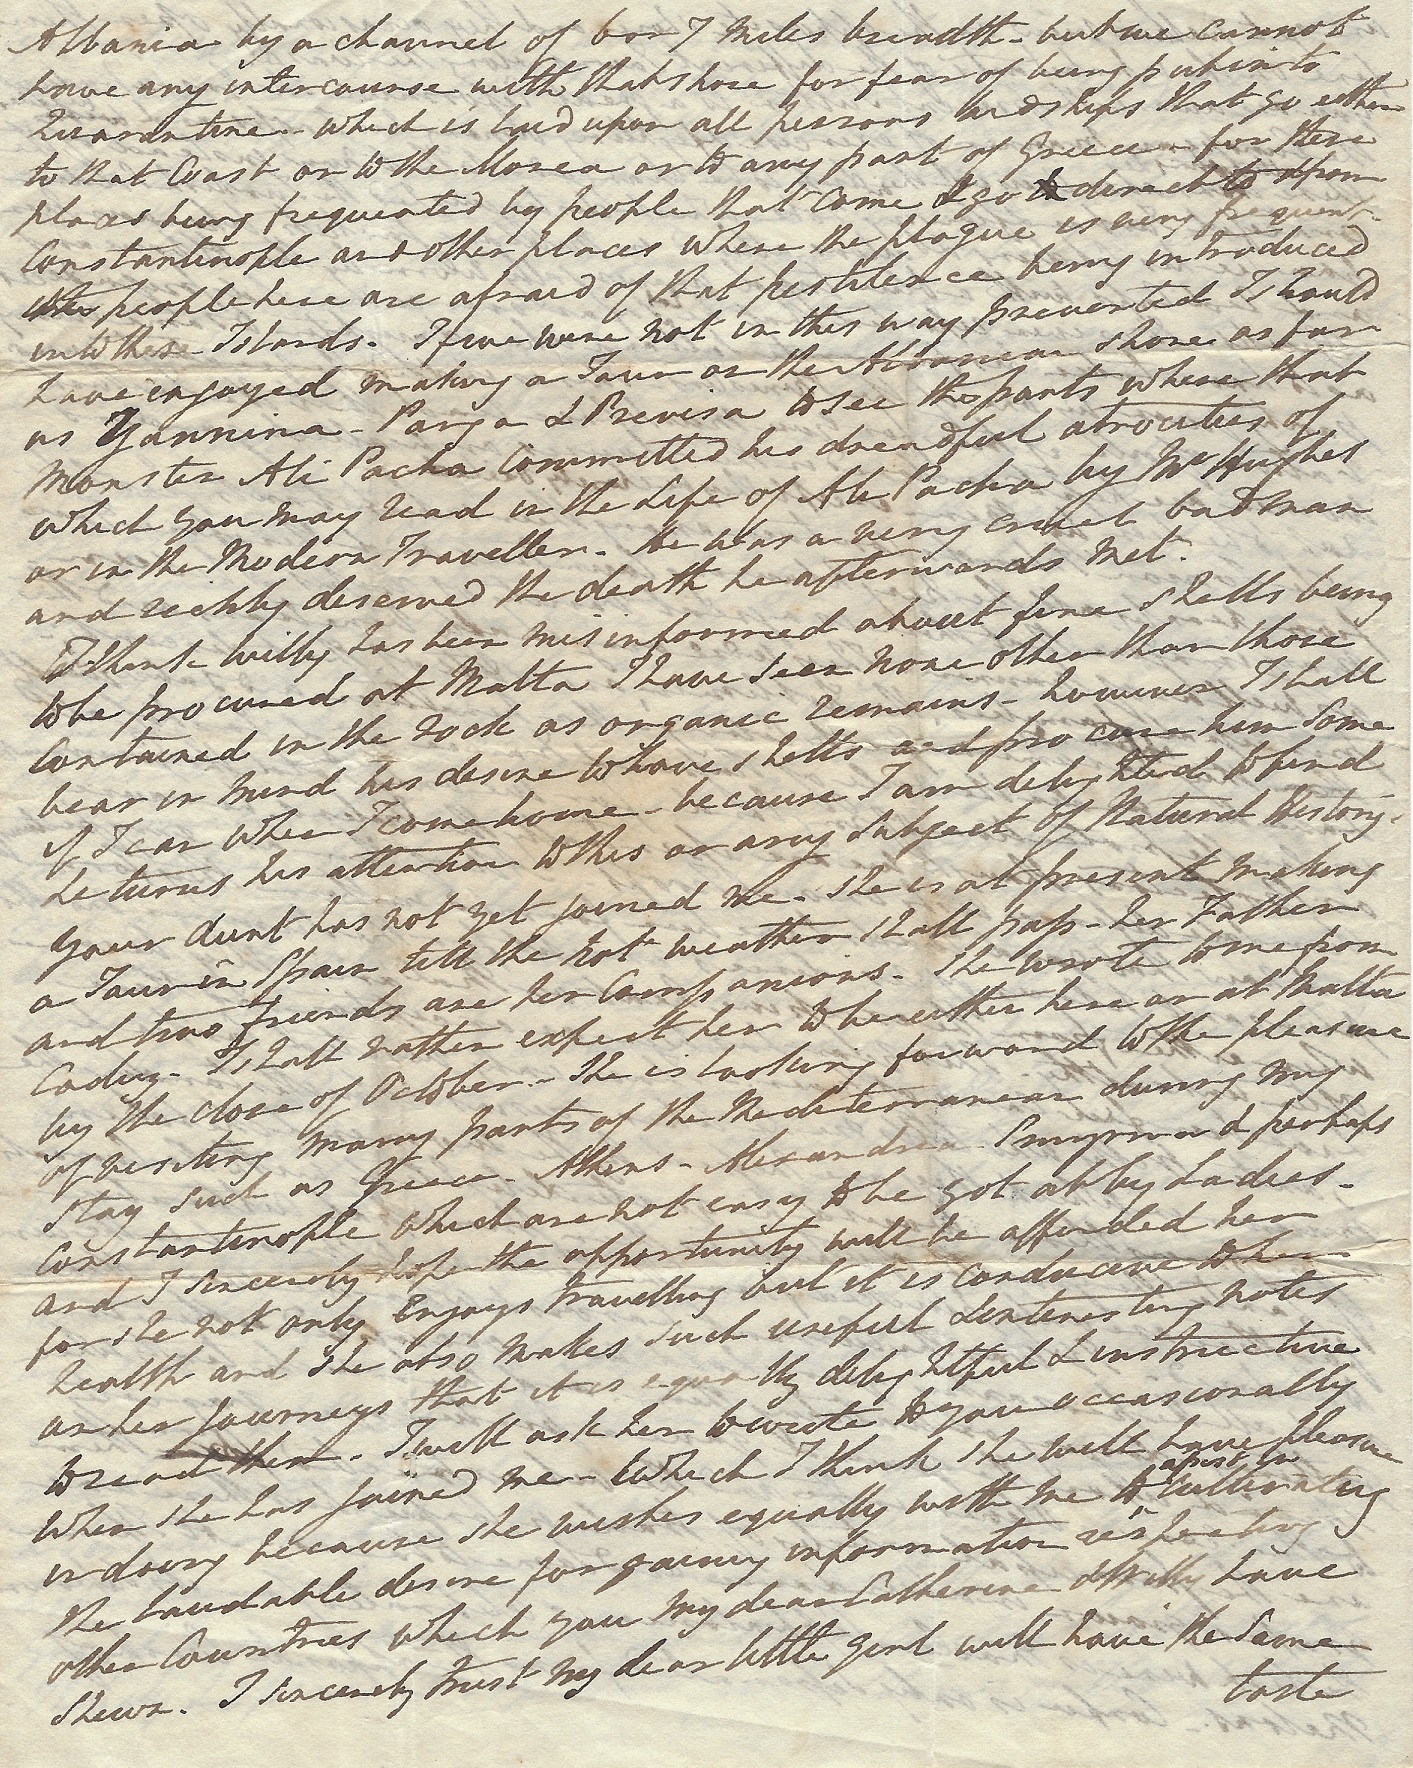 Albania by a channel of 6 or 7 Miles breadth - but we cannot
have any intercourse with that shore for fear of being put into
Quarantine - which is laid upon all persons and ships that go either
to that Coast or to the Morea or to any part of Greece - for these
places being frequented by people that come & go direct to & from
Constantinople and other places where the plague is very frequent -
the people here are afraid of that pestilence being introduced
into these Islands. If we were not in this way prevented I should
have enjoyed making a Tour on the Albanian shore as far
as Yannina - Parga & Previsa to see the parts where that
Monster Ali Pacha committed his dreadful atrocities of
which you may read in the Life of Ali Pacha by Mr Hughes
or in the Modern Traveller. He was a very cruel bad man
and richly deserved the death he afterwards met.
I think Willy has been misinformed about fine shells being
to be procured at Malta I have seen none other than those
contained in the rock as organic remains - however I shall
bear in mind his desire to have shells and procure him some
if I can when I come home - because I am delighted to find
he turns his attention to this or any subject of Natural History.
Your Aunt has not yet joined me. She is at present making
a Tour in Spain till the hot weather shall pass - her Father
and two friends are her Companions. She wrote to me from
Cadiz. I shall rather expect her to be either here or at Malta
by the close of October - She is looking forward to the pleasure
of visiting many parts of the Mediterranean during my
stay such as Greece - Athens - Alexandria Smyrna and perhaps
Constantinople which are not easy to be got at by Ladies -
and I sincerely hope the opportunity will be afforded her
for she not only Enjoys travelling but it is conducive to her
health and she also makes such useful & interesting notes
on her journeys that it is equally delightful & instructive
to read them. I will ask her to write to you occasionally
when she has joined me - which I think she will have pleasure
in doing because she wishes equally with me to assist in cultivating
the laudable desire for gaining information respecting
other Countries which you my dear Catherine & Willy have
shewn. I sincerely trust my dear little girl will have the same
taste